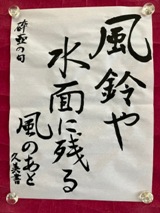 風鈴や
水面に残る
風のあと
久美書
碎花の句